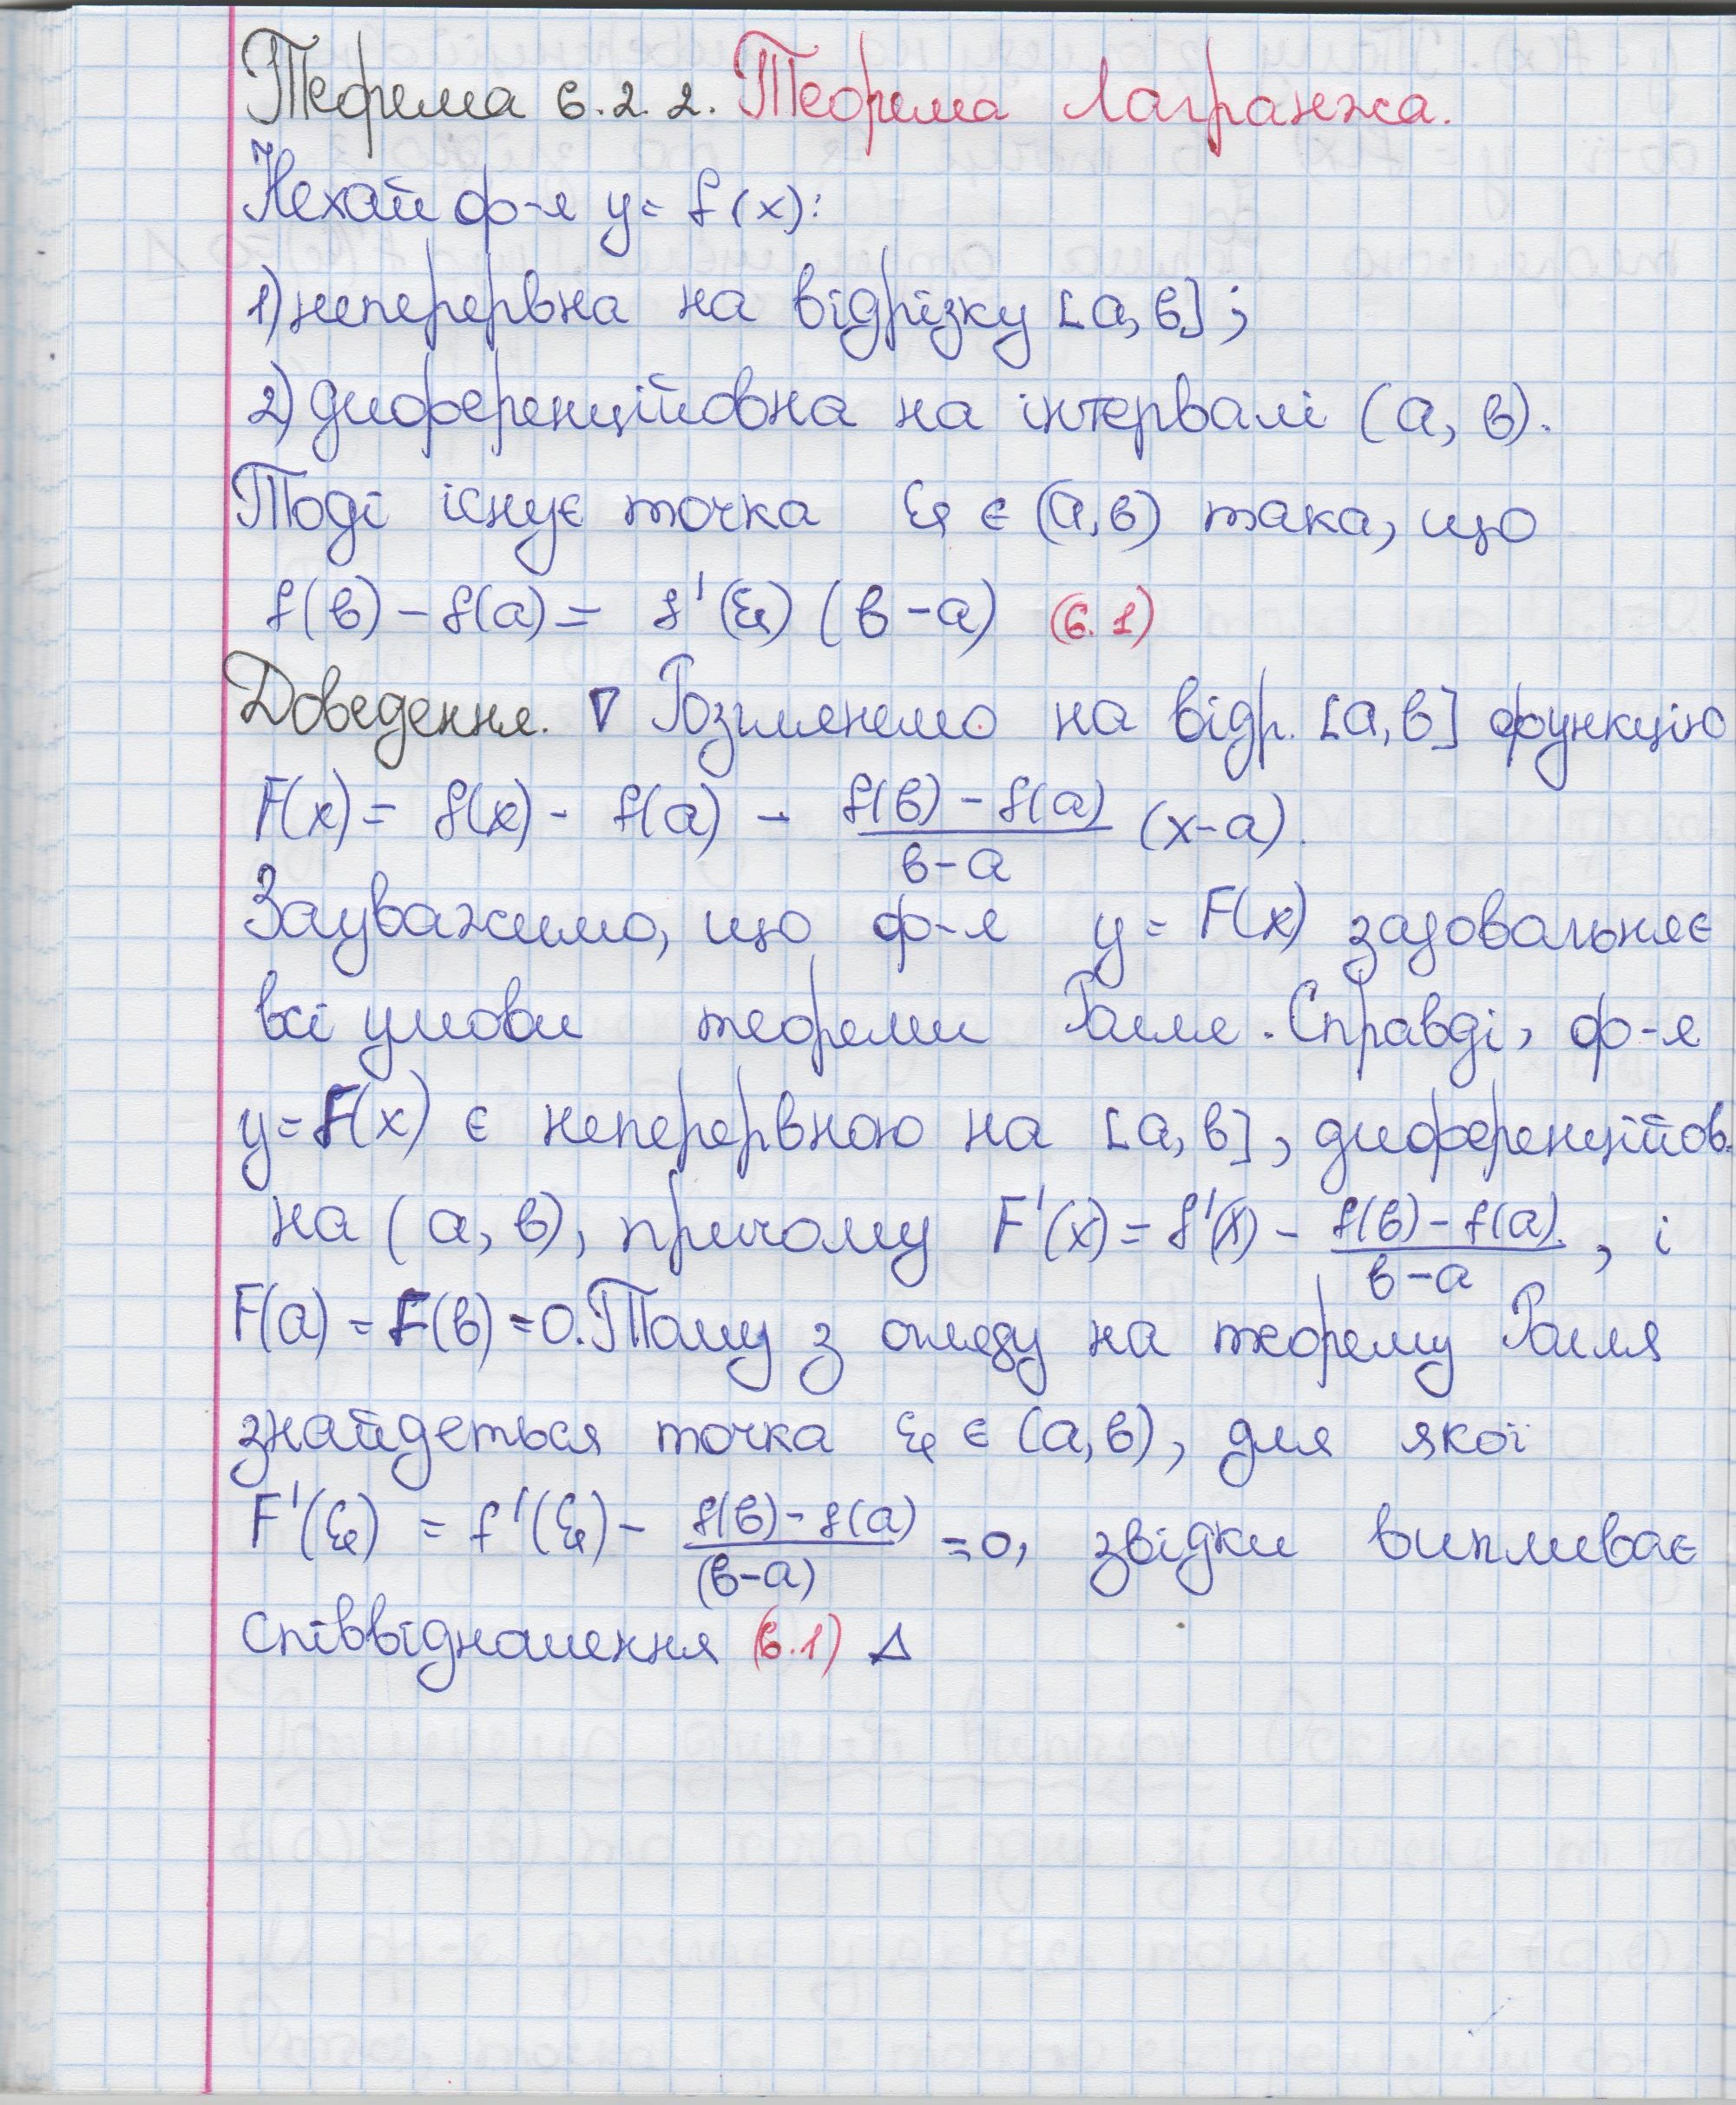 Теорема 6.2.2. Теорема Лагранжа.
Нехай ф-я y = f(x):
1) неперервна на відрізку [a, b];
2) диференційовна на інтервалі (a, b).
Тоді існує точка ξ ∈ (a, b) така, що
f(b) - f(a) = f'(ξ) (b - a) (6.1)
Доведення. ∇ Розглянемо на відр. [a, b] функцію
F(x) = f(x) - f(a) - (f(b) - f(a))/(b - a) (x - a).
Зауважимо, що ф-я y = F(x) задовольняє
всі умови теореми Ролля. Справді, ф-я
y = F(x) є неперервною на [a, b], диференційов.
на (a, b), причому F'(x) = f'(x) - (f(b) - f(a))/(b - a), і
F(a) = F(b) = 0. Тому з огляду на теорему Ролля
знайдеться точка ξ ∈ (a, b), для якої
F'(ξ) = f'(ξ) - (f(b) - f(a))/(b - a) = 0, звідки випливає
співвідношення (6.1) Δ